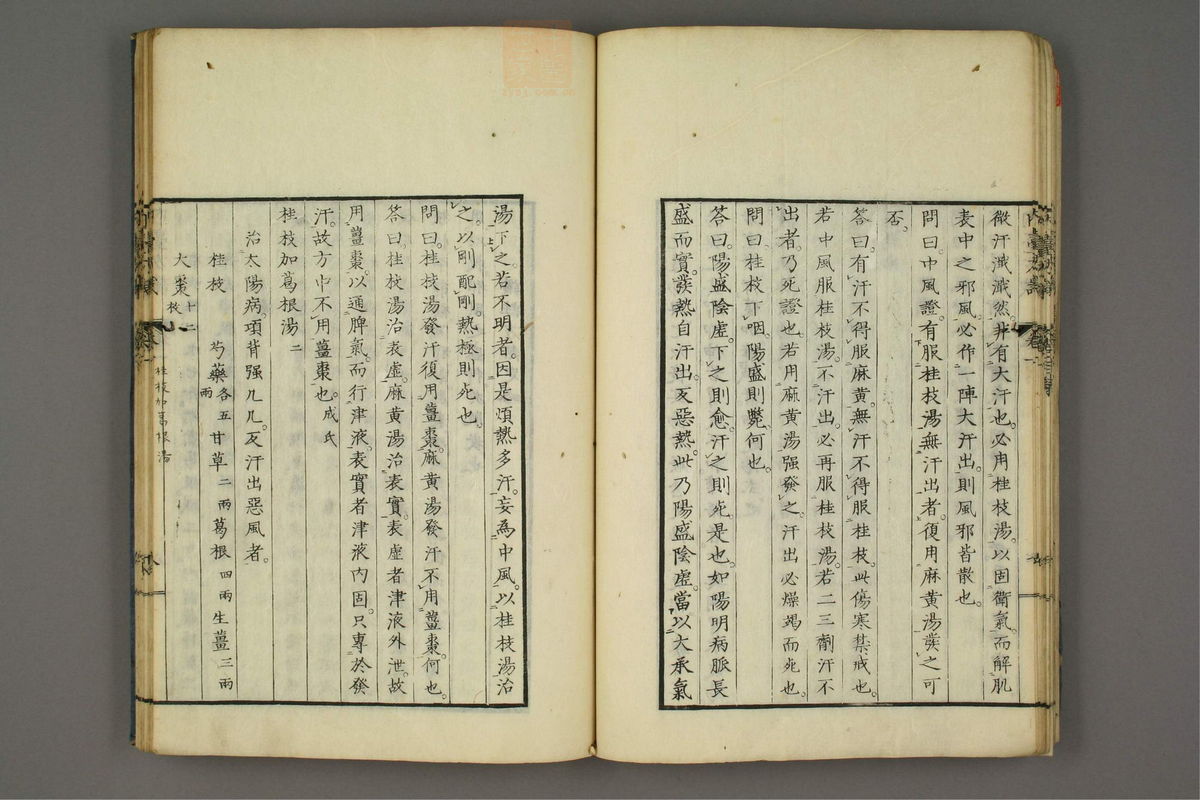 微汗濈濈然。非有大汗也。必用桂枝湯。以固衛氣。而解肌
表中之邪風。必作一陣大汗出。則風邪皆散也。
問曰。中風證。有服桂枝湯。無汗出者。復用麻黃湯發之可
否。
答曰。有汗不得服麻黃。無汗不得服桂枝。此傷寒禁戒也。
若中風服桂枝湯。不汗出。必再服桂枝湯。若二三劑汗不
出者。乃死證也。若用麻黃湯强發之。汗出必燥竭而死也。
問曰。桂枝下咽。陽盛則斃。何也。
答曰。陽盛陰虛。下之則愈。汗之則死是也。如陽明病脈長
盛而實。發熱自汗出。反惡熱。此乃陽盛陰虛。當以大承氣
湯下之。若不明者。因是煩熱多汗。妄為中風。以桂枝湯治
之。以剛配剛。熱極則死也。
問曰。桂枝湯發汗。復用薑棗。麻黃湯發汗。不用薑棗。何也。
答曰。桂枝湯治表虛。麻黃湯治表實。表虛者津液外泄。故
用薑棗。以通脾氣。而行津液。表實者津液內固。只專於發
汗。故方中不用薑棗也。成氏
桂枝加葛根湯 二
治太陽病。項背强几几。反汗出惡風者。
桂枝 芍藥各五兩 甘草二兩 葛根四兩 生薑三兩
大棗十二枚
桂枝加葛根湯